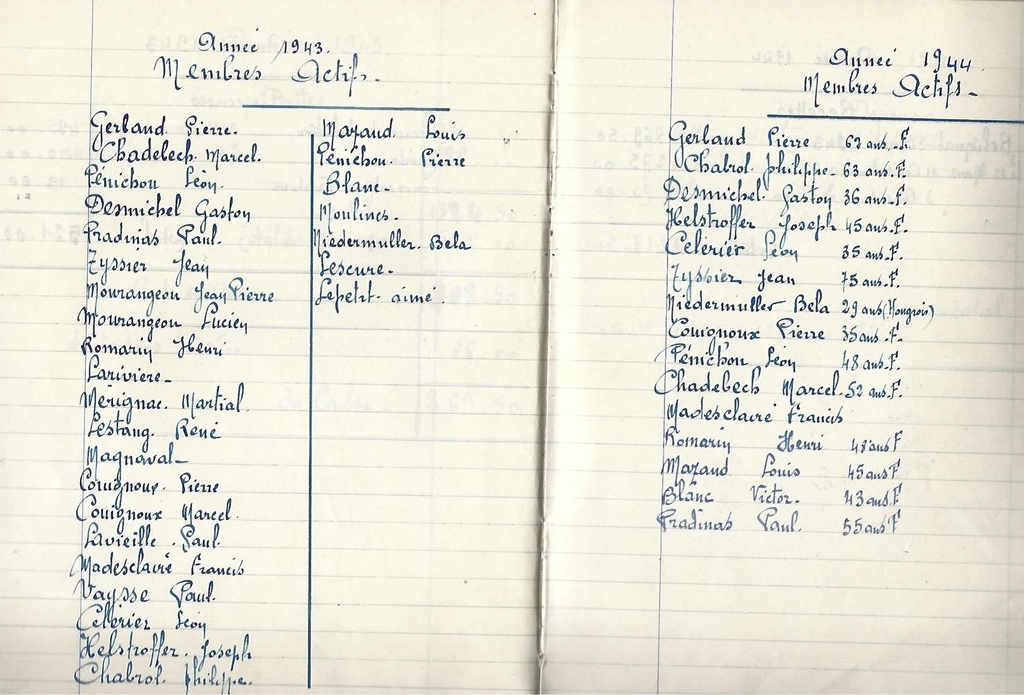 Année 1943.
Membres Actifs.
Gerbaud Pierre.
Chadebech. Marcel.
Pénichon Léon.
Desmichel Gaston
Pradinas Paul.
Zyssier Jean
Mourangeon Jean Pierre
Mourangeon Lucien
Romarin Henri
Lariviere_
Mérignac. Martial.
Lestang. René
Magnaval_
Couignoux. Pierre
Couignoux Marcel.
Lavieille. Paul.
Madesclaire Francis
Vaysse Paul.
Celérier Léon
Helstroffer. Joseph
Chabrol. philippe.
Mazaud Louis
Pénichon. Pierre
Blanc_
Moulines.
Niedermuller. Bela
Lescure_
Lepetit. aimé
Année 1944.
Membres Actifs_
Gerbaud Pierre 62 ans. F.
Chabrol. philippe_ 63 ans. F.
Desmichel. Gaston 36 ans. F.
Helstroffer Joseph 45 ans. F.
Celérier Léon 35 ans. F.
Zyssier Jean 75 ans. F.
Niedermuller Bela 29 ans (Hongrois)
Couignoux Pierre 35 ans. F.
Pénichon Léon 48 ans. F.
Chadebech Marcel. 52 ans. F.
Madesclaire Francis
Romarin Henri 48 ans F
Mazaud Louis 45 ans F
Blanc Victor. 43 ans. F.
Pradinas Paul. 55 ans F